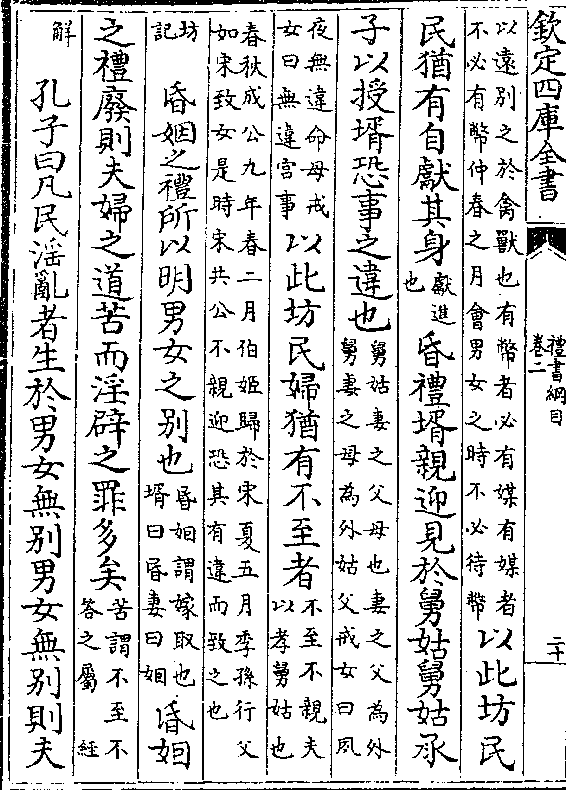 欽定四庫全書
禮書綱目
卷二
二十
以遠別之於禽獸也有幣者必有媒有媒者
不必有幣仲春之月會男女之時不必待幣
以此坊民
民猶有自獻其身
獻進
也
昏禮壻親迎見於舅姑舅姑承
子以授壻恐事之違也
舅姑妻之父母也妻之父為外
舅妻之母為外姑父戒女曰夙
夜無違命母戒
女曰無違宮事
以此坊民婦猶有不至者
不至不親夫
以孝舅姑也
春秋成公九年春二月伯姬歸於宋夏五月季孫行父
如宋致女是時宋共公不親迎恐其有違而致之也
坊
記
昏姻之禮所以明男女之别也
昏姻謂嫁取也
壻曰昏妻曰姻
昏姻
之禮廢則夫婦之道苦而淫辟之罪多矣
苦謂不至不
答之屬
經
解
孔子曰凡民淫亂者生於男女無别男女無别則夫